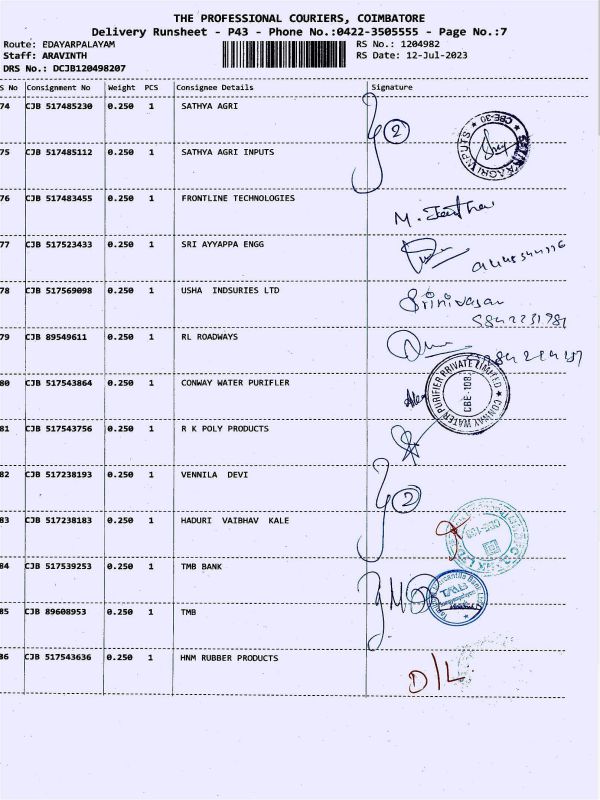 THE PROFESSIONAL COURIERS, COIMBATORE
Delivery Runsheet - P43 - Phone No.:0422-3505555 - Page No.:7
Route: EDAYARPALAYAM RS No.: 1204982
Staff: ARAVINTH RS Date: 12-Jul-2023
DRS No.: DCJB120498207
S No Consignment No Weight PCS Consignee Details Signature
74 CJB 517485230 0.250 1 SATHYA AGRI
2
CBE-30
75 CJB 517485112 0.250 1 SATHYA AGRI INPUTS
76 CJB 517483455 0.250 1 FRONTLINE TECHNOLOGIES
77 CJB 517523433 0.250 1 SRI AYYAPPA ENGG
78 CJB 517569098 0.250 1 USHA INDSURIES LTD
Srinivasan
79 CJB 89549611 0.250 1 RL ROADWAYS
80 CJB 517543864 0.250 1 CONWAY WATER PURIFLER
CONWAY WATER PURIFIER PRIVATE LIMITED
CBE-108
81 CJB 517543756 0.250 1 R K POLY PRODUCTS
82 CJB 517238193 0.250 1 VENNILA DEVI
2
83 CJB 517238183 0.250 1 HADURI VAIBHAV KALE
84 CJB 517539253 0.250 1 TMB BANK
85 CJB 89608953 0.250 1 TMB
86 CJB 517543636 0.250 1 HNM RUBBER PRODUCTS
D/L